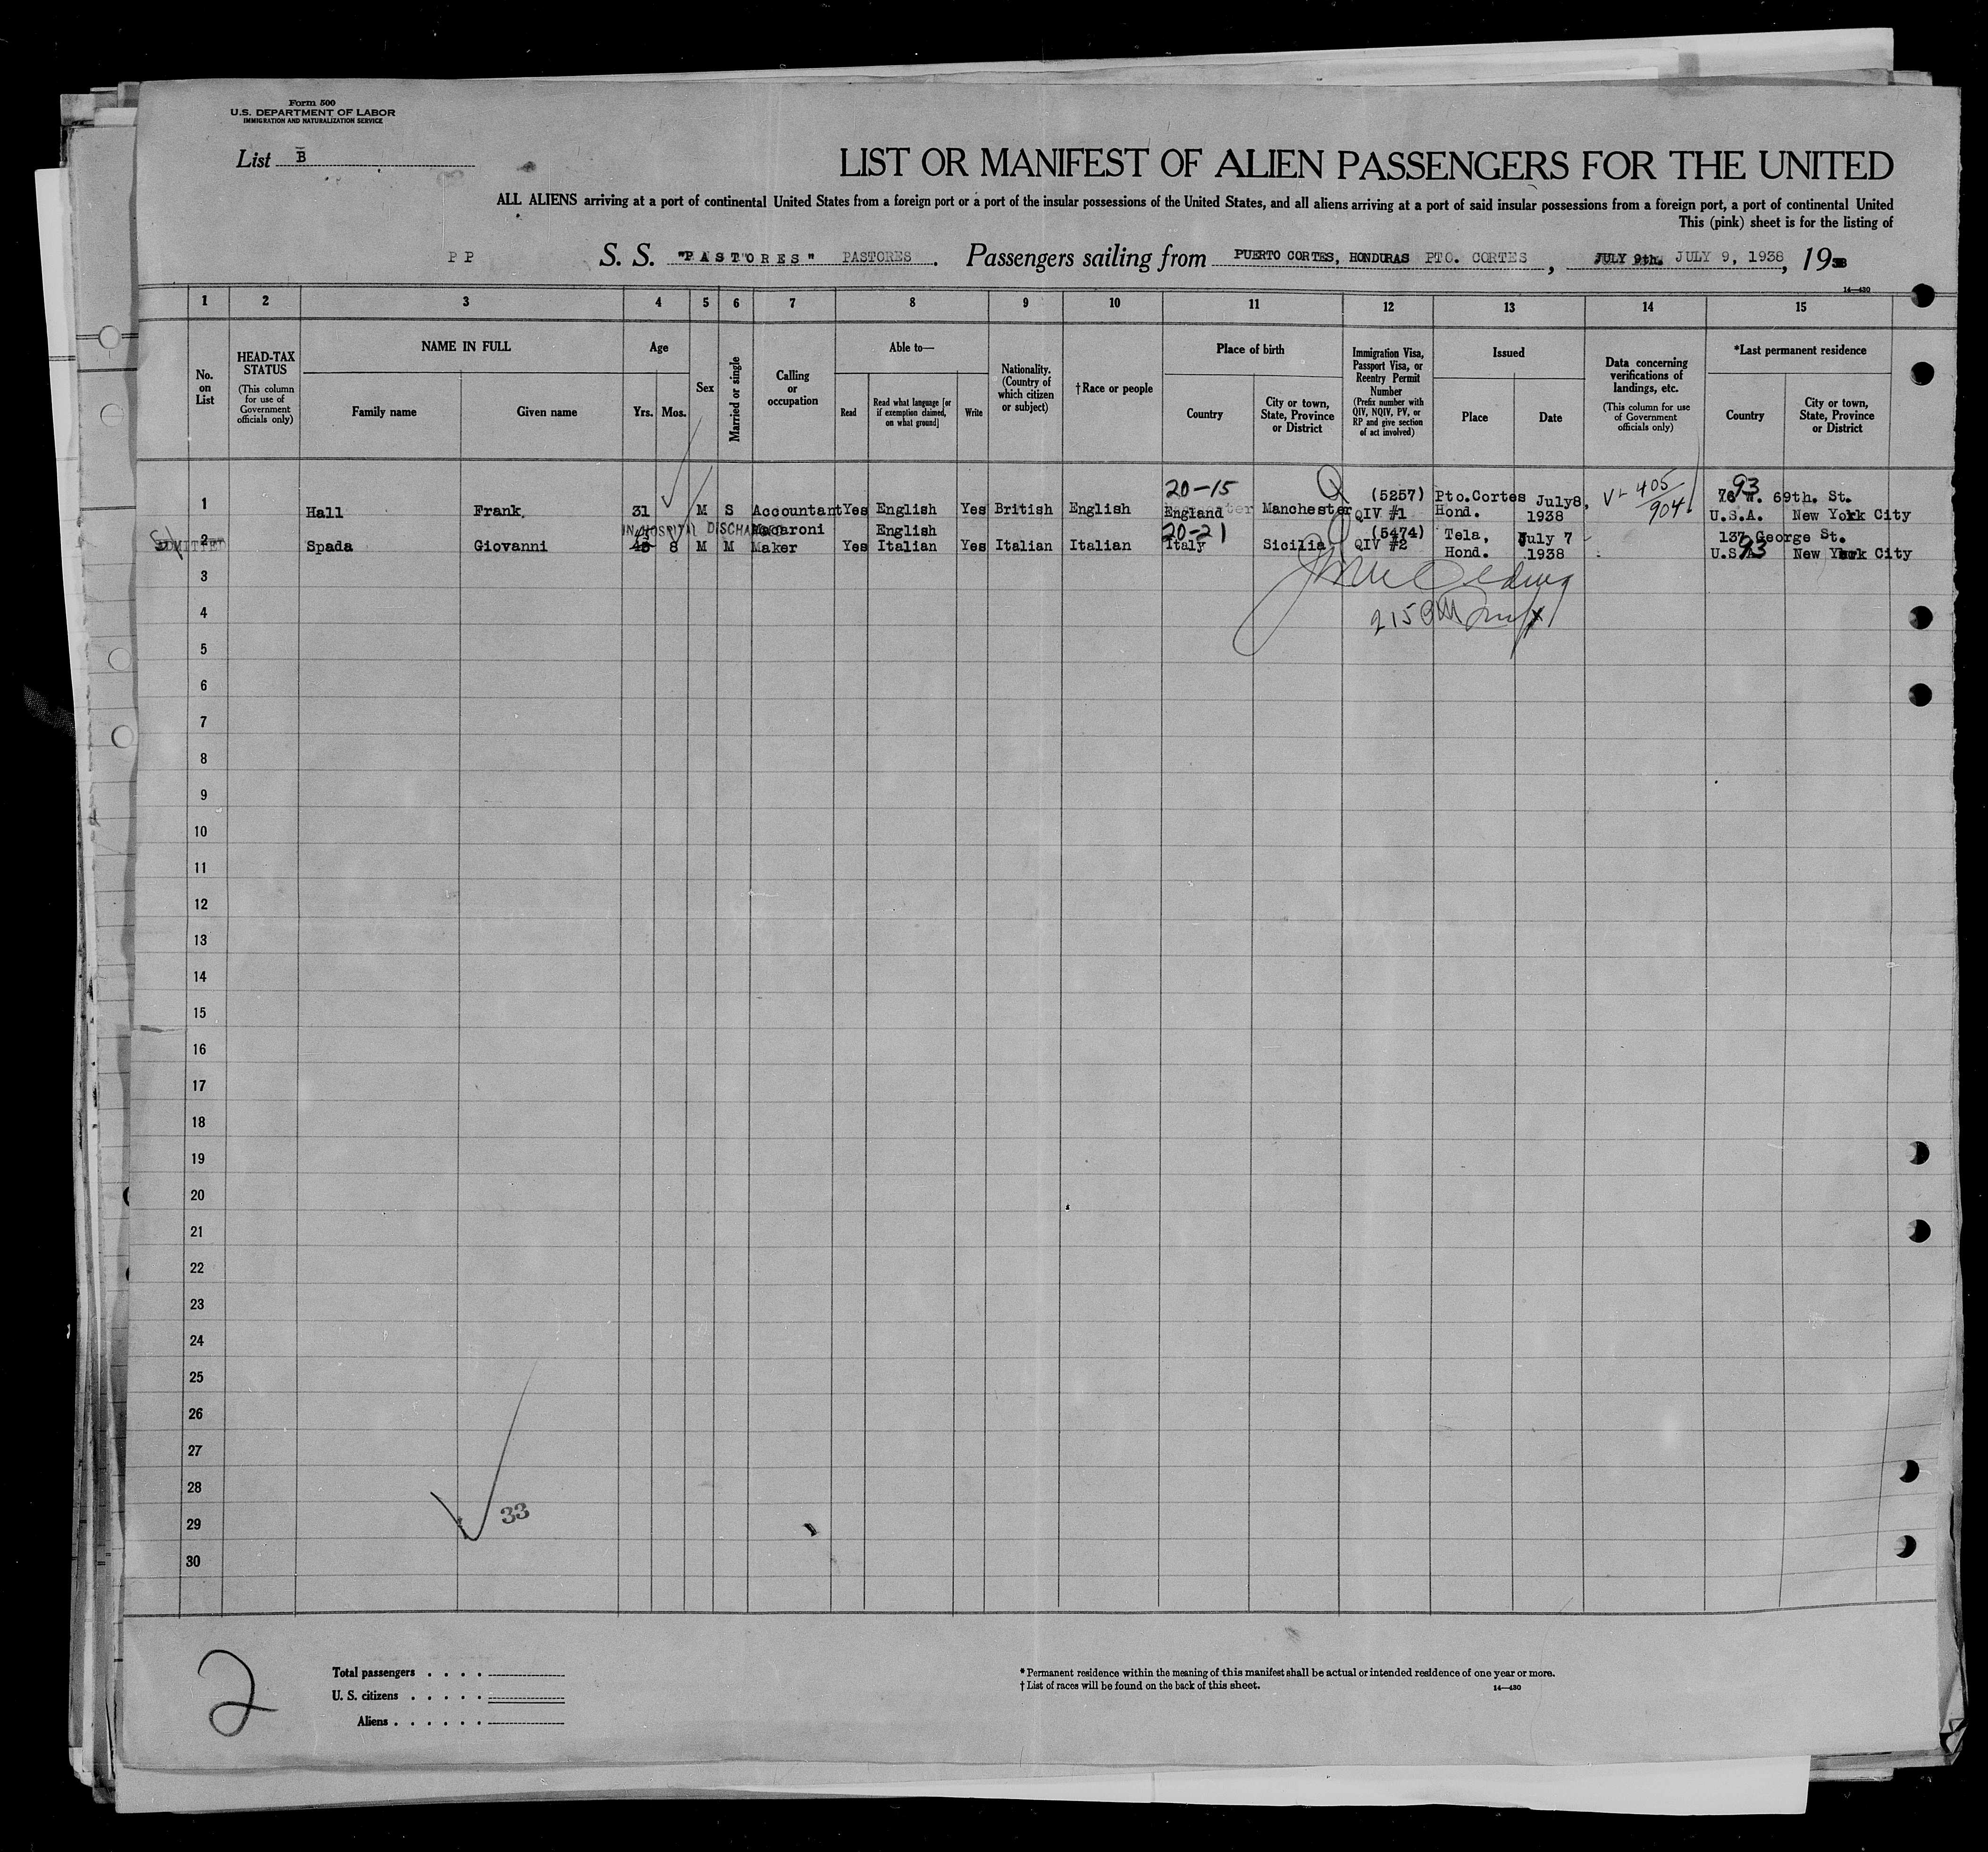 Form 500
U.S. DEPARTMENT OF LABOR
IMMIGRATION AND NATURALIZATION SERVICE
List B
LIST OR MANIFEST OF ALIEN PASSENGERS FOR THE UNITED
ALL ALIENS arriving at a port of continental United States from a foreign port or a port of the insular possessions of the United States, and all aliens arriving at a port of said insular possessions from a foreign port, a port of continental United
This (pink) sheet is for the listing of
P P S. S. "PASTORES" PASTORES. Passengers sailing from PUERTO CORTES, HONDURAS PTO. CORTES, JULY 9th. JULY 9, 1938, 1938
14—430
1 2 3 4 5 6 7 8 9 10 11 12 13 14 15
No. on List
HEAD-TAX STATUS
(This column for use of Government officials only)
NAME IN FULL
Family name
Given name
Age
Yrs. Mos.
Sex
Married or single
Calling or occupation
Able to—
Read
Read what language [or if exemption claimed, on what ground]
Write
Nationality. (Country of which citizen or subject)
†Race or people
Place of birth
Country
City or town, State, Province or District
Immigration Visa, Passport Visa, or Reentry Permit Number
(Prefix number with QIV, NQIV, PV, or RP and give section of act involved)
Issued
Place
Date
Data concerning verifications of landings, etc.
(This column for use of Government officials only)
*Last permanent residence
Country
City or town, State, Province or District
20-15 Q (5257) Pto.Cortes July8, V- 405/904 93 76 W. 69th. St.
1 Hall Frank. 31 M S Accountant Yes English Yes British English England Manchester QIV #1 Hond. 1938 U.S.A. New York City
IN HOSPITAL DISCHARGED Macaroni English 20-21 (5474) Tela, July 7 137 George St.
ADMITTED 2 Spada Giovanni 45 8 M M Maker Yes Italian Yes Italian Italian Italy Sicilia QIV #2 Hond. 1938 U.S.A. 93 New York City
3
4
5
6
7
8
9
10
11
12
13
14
15
16
17
18
19
20
21
22
23
24
25
26
27
28
29 33
30
2
Total passengers . . . .
U. S. citizens . . . . .
Aliens . . . . . .
* Permanent residence within the meaning of this manifest shall be actual or intended residence of one year or more.
† List of races will be found on the back of this sheet.
14—430